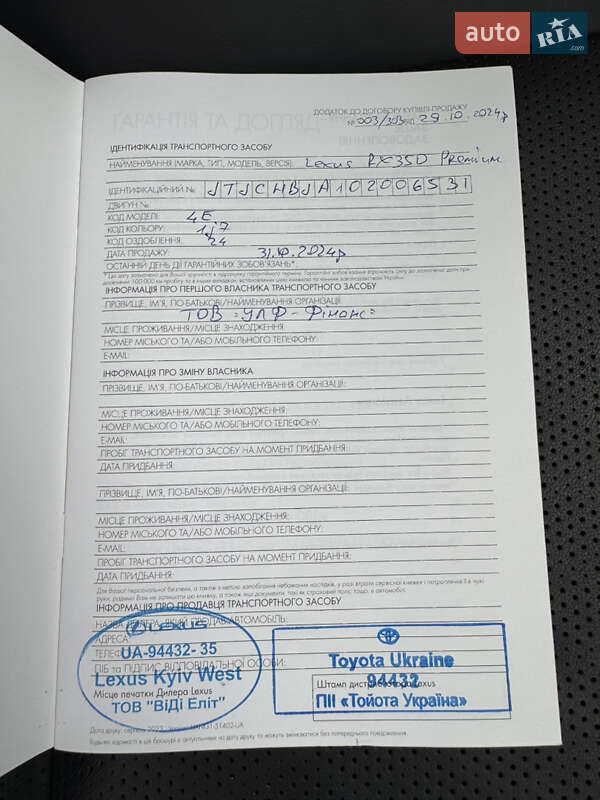 auto RIA .com
ГАРАНТІЯ ТА
ДОДАТОК ДО ДОГОВОРУ КУПІВЛІ-ПРОДАЖУ
№ 003/303 від 29.10.2024р
ІДЕНТИФІКАЦІЯ ТРАНСПОРТНОГО ЗАСОБУ
НАЙМЕНУВАННЯ (МАРКА, ТИП, МОДЕЛЬ, ВЕРСІЯ): Lexus RX350 Premium
ІДЕНТИФІКАЦІЙНИЙ № JTJCHBJA102006531
ДВИГУН №:
КОД МОДЕЛІ: 4E
КОД КОЛЬОРУ: 1j7
КОД ОЗДОБЛЕННЯ: 24
ДАТА ПРОДАЖУ: 31.10.2024р
ОСТАННІЙ ДЕНЬ ДІЇ ГАРАНТІЙНИХ ЗОБОВ'ЯЗАНЬ*
ІНФОРМАЦІЯ ПРО ПЕРШОГО ВЛАСНИКА ТРАНСПОРТНОГО ЗАСОБУ
ПРІЗВИЩЕ, ІМ'Я, ПО-БАТЬКОВІ/НАЙМЕНУВАННЯ ОРГАНІЗАЦІЇ:
ТОВ "УЛФ-Фінанс"
МІСЦЕ ПРОЖИВАННЯ/МІСЦЕ ЗНАХОДЖЕННЯ:
НОМЕР МІСЬКОГО ТА/АБО МОБІЛЬНОГО ТЕЛЕФОНУ:
E-MAIL:
ІНФОРМАЦІЯ ПРО ЗМІНУ ВЛАСНИКА
ПРІЗВИЩЕ, ІМ'Я, ПО-БАТЬКОВІ/НАЙМЕНУВАННЯ ОРГАНІЗАЦІЇ:
МІСЦЕ ПРОЖИВАННЯ/МІСЦЕ ЗНАХОДЖЕННЯ:
НОМЕР МІСЬКОГО ТА/АБО МОБІЛЬНОГО ТЕЛЕФОНУ:
E-MAIL:
ПРОБІГ ТРАНСПОРТНОГО ЗАСОБУ НА МОМЕНТ ПРИДБАННЯ:
ДАТА ПРИДБАННЯ:
ПРІЗВИЩЕ, ІМ'Я, ПО-БАТЬКОВІ/НАЙМЕНУВАННЯ ОРГАНІЗАЦІЇ:
МІСЦЕ ПРОЖИВАННЯ/МІСЦЕ ЗНАХОДЖЕННЯ:
НОМЕР МІСЬКОГО ТА/АБО МОБІЛЬНОГО ТЕЛЕФОНУ:
E-MAIL:
ПРОБІГ ТРАНСПОРТНОГО ЗАСОБУ НА МОМЕНТ ПРИДБАННЯ:
ДАТА ПРИДБАННЯ:
ІНФОРМАЦІЯ ПРО ПРОДАВЦЯ ТРАНСПОРТНОГО ЗАСОБУ
НАЗВА ДИЛЕРА, ЯКИЙ ПРОДАВ АВТОМОБІЛЬ:
АДРЕСА:
ТЕЛЕФ
ПІБ ТА ПІДПИС ВІДПОВІДАЛЬНОЇ ОСОБИ:
LEXUS
UA-94432-35
Lexus Kyiv West
Місце печатки Дилера Lexus
ТОВ "ВіДі Еліт"
Toyota Ukraine
94432
Штамп дистриб'ютора Lexus
ПІІ «Тойота Україна»